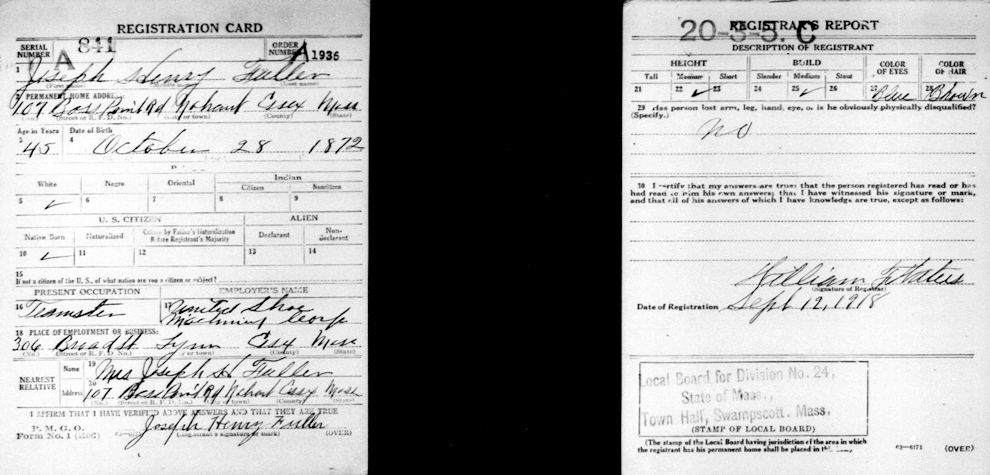 REGISTRATION CARD
SERIAL NUMBER 841 A
ORDER NUMBER A 1936
1 Joseph Henry Fuller
(First name) (Middle name) (Last name)
2 PERMANENT HOME ADDRESS:
107 Bass Point Rd Nahant Essex Mass
(No.) (Street or R. F. D. No.) (City or town) (County) (State)
Age in Years Date of Birth
3 45 4 October 28 1872
White Negro Oriental Indian
Citizen Noncitizen
5 ✓ 6 7 8 9
U. S. CITIZEN ALIEN
Native Born Naturalized Citizen by Father's Naturalization Before Registrant's Majority Declarant Non-declarant
10 ✓ 11 12 13 14
15
If not a citizen of the U. S., of what nation are you a citizen or subject?
PRESENT OCCUPATION EMPLOYER'S NAME
16 Teamster 17 United Shoe
Machinery Corp
18 PLACE OF EMPLOYMENT OR BUSINESS:
306 Broad St Lynn Essex Mass
(No.) (Street or R. F. D. No.) (City or town) (County) (State)
NEAREST RELATIVE
Name 19 Mrs Joseph H Fuller
Address 20 107 Bass Point Rd Nahant Essex Mass
(No.) (Street or R. F. D. No.) (City or town) (County) (State)
I AFFIRM THAT I HAVE VERIFIED ABOVE ANSWERS AND THAT THEY ARE TRUE
P. M. G. O.
Form No. 1 (Red)
Joseph Henry Fuller
(Registrant's signature or mark) (OVER)
REGISTRAR'S REPORT
20-3-5. C
DESCRIPTION OF REGISTRANT
HEIGHT BUILD COLOR OF EYES COLOR OF HAIR
Tall Medium Short Slender Medium Stout
21 22 ✓ 23 24 25 ✓ 26 27 Blue 28 Brown
29 Has person lost arm, leg, hand, eye, or is he obviously physically disqualified?
(Specify.)
No
30 I certify that my answers are true; that the person registered has read or has
had read to him his own answers; that I have witnessed his signature or mark,
and that all of his answers of which I have knowledge are true, except as follows:
William F Waters
(Signature of Registrar)
Date of Registration Sept 12, 1918
Local Board for Division No. 24,
State of Mass.,
Town Hall, Swampscott, Mass.
(STAMP OF LOCAL BOARD)
(The stamp of the Local Board having jurisdiction of the area in which
the registrant has his permanent home shall be placed in this box.)
03—6171 (OVER)